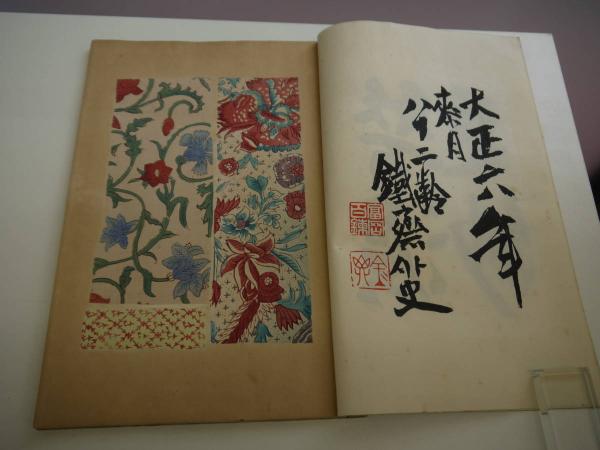 大正六年
桼月
八十二齢
鐵齋外史
富岡百鍊